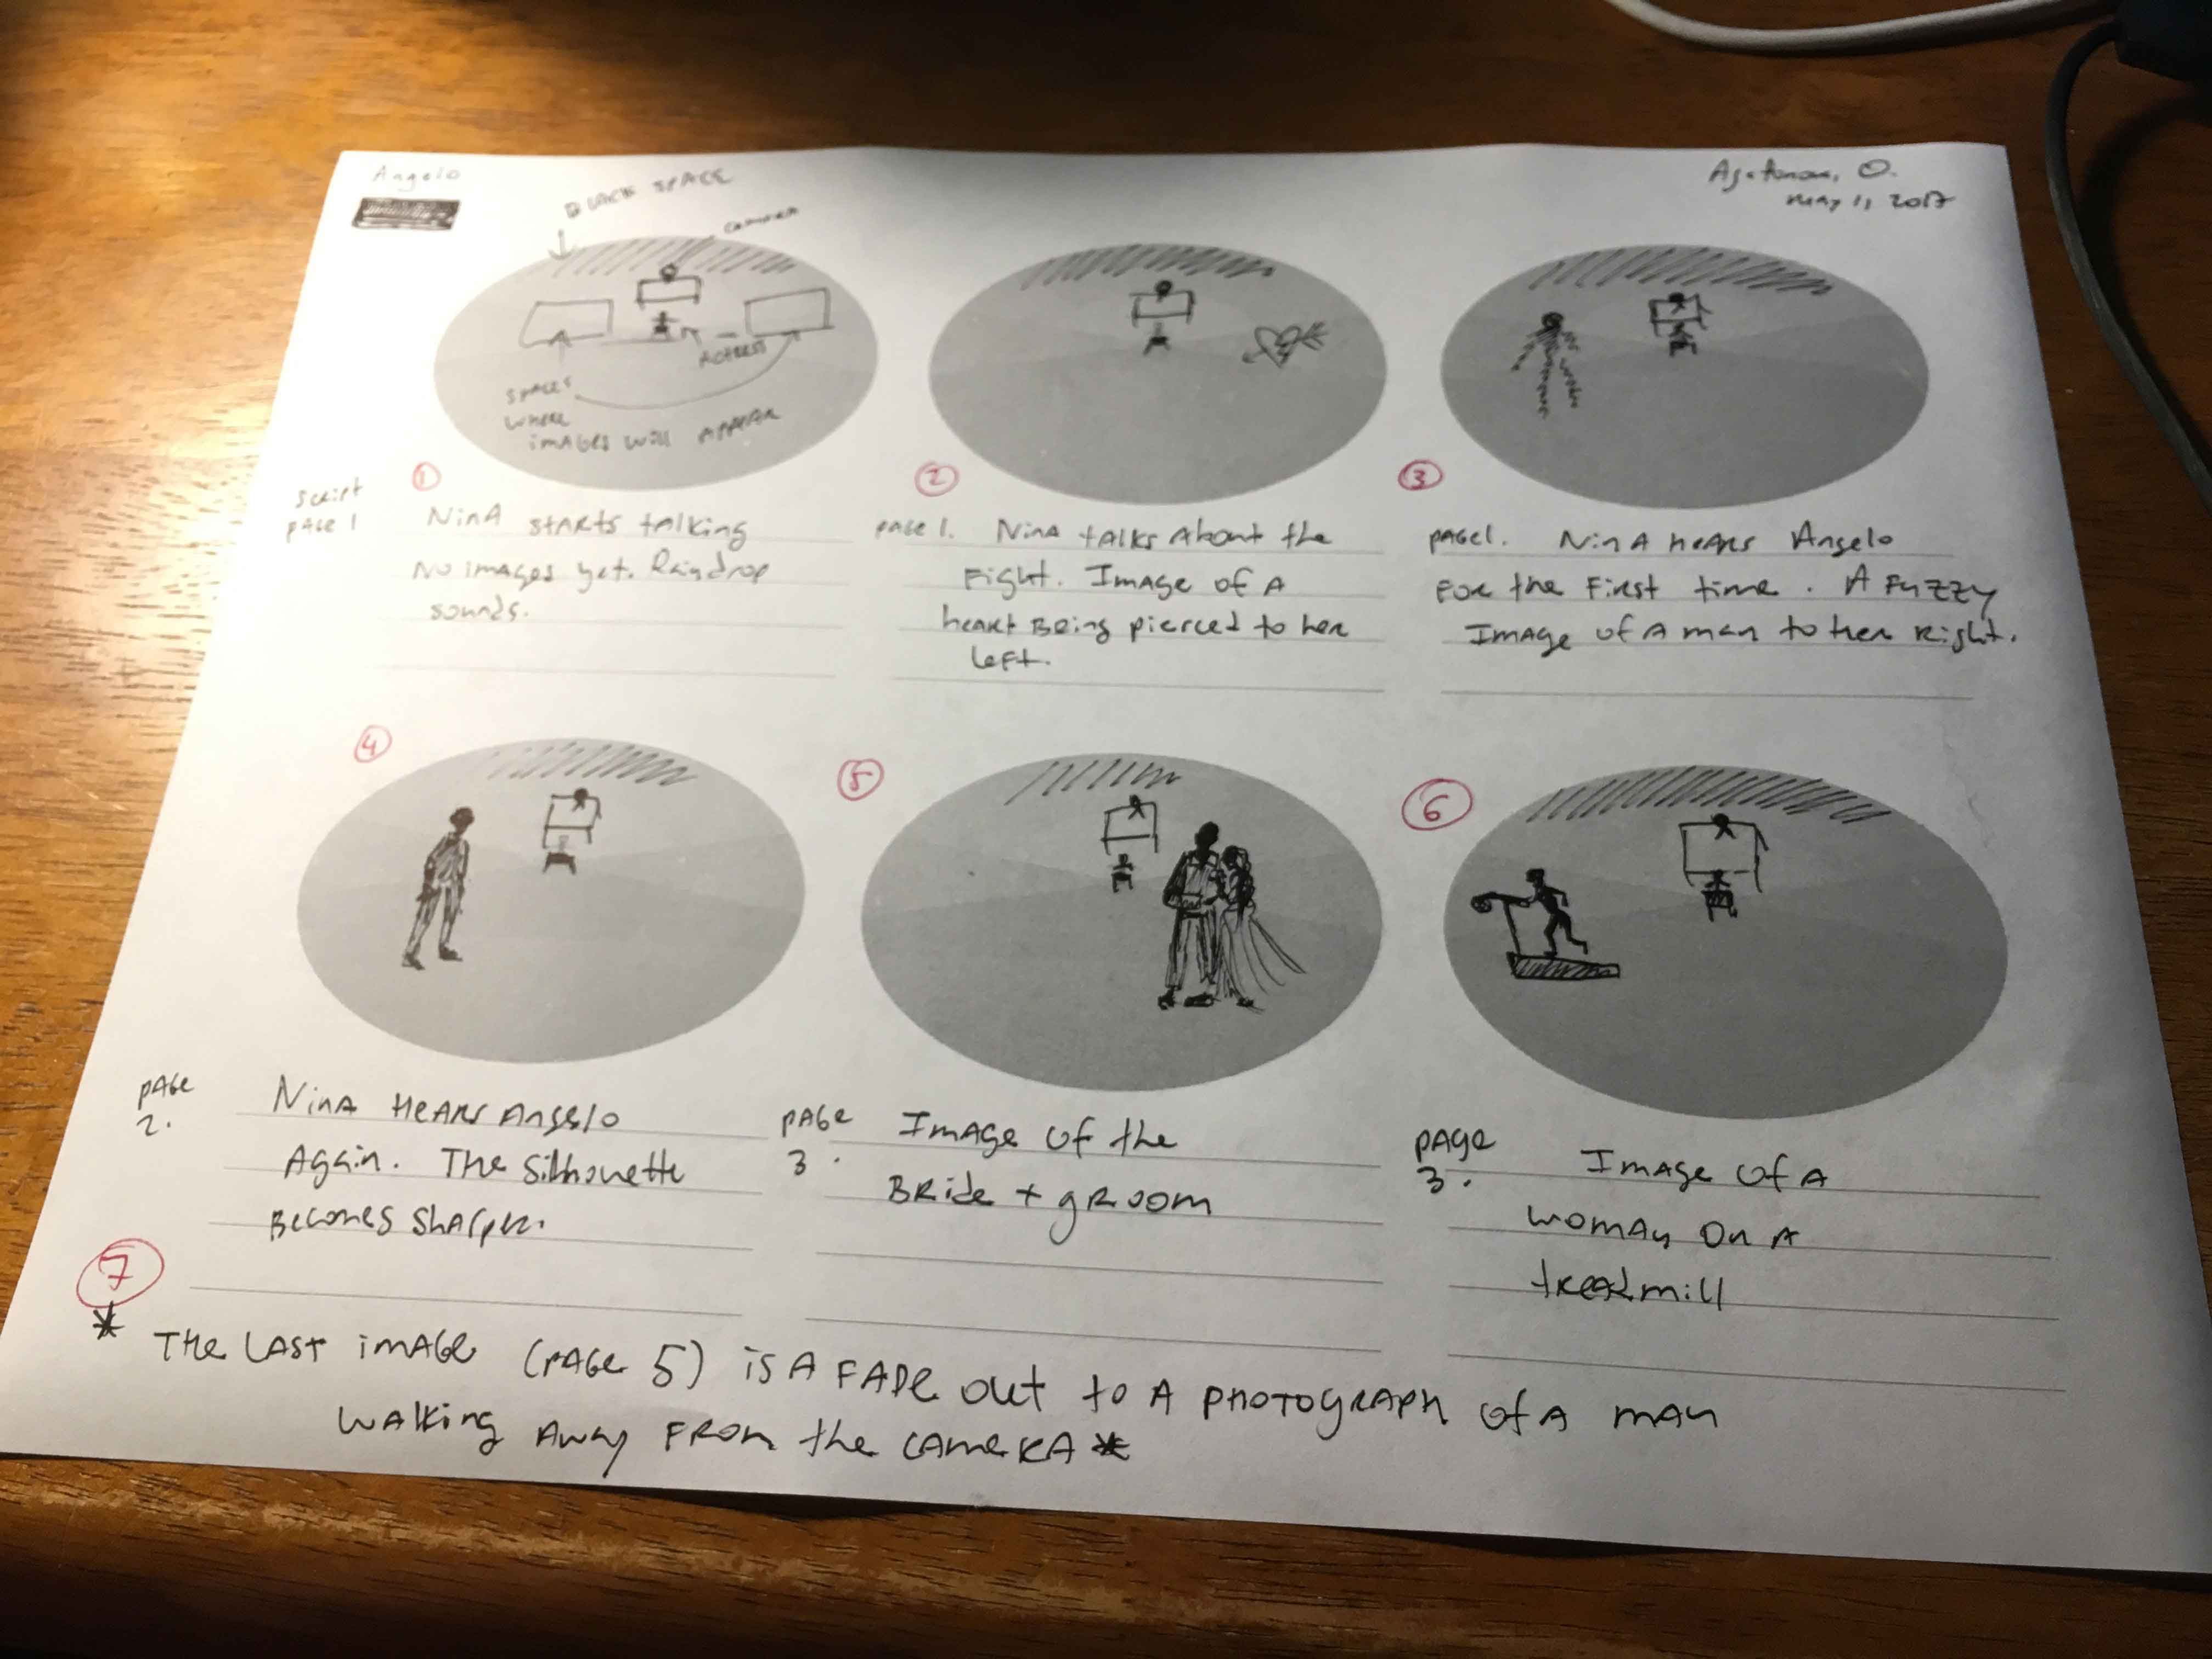 Angelo
BLACK SPACE
camera
May 1, 2017
ACTRESS
SPACES
WHERE
iMAGES WiLL APPEAR
Script
PAGE 1
1
NinA STARTS talking
No images yet. Raindrop
sounds.
2
PAGE 1. Nina talks About the
Fight. Image of A
heart Being pierced to her
left.
3
PAGE 1. NinA heARs Angelo
FOR the First time. A Fuzzy
Image of A man to her Right.
4
PAGE
2.
NinA HeARs Angelo
Again. The Silhouette
Becomes Sharper.
5
PAGE
3.
Image of the
Bride + gROOM
6
PAGE
3.
Image of A
woman On A
treadmill
7
* THe LAST image (PAGE 5) is A FADe out to A PHOTOGRAPH of A man
WALKing Away FRom the CAmeRA *